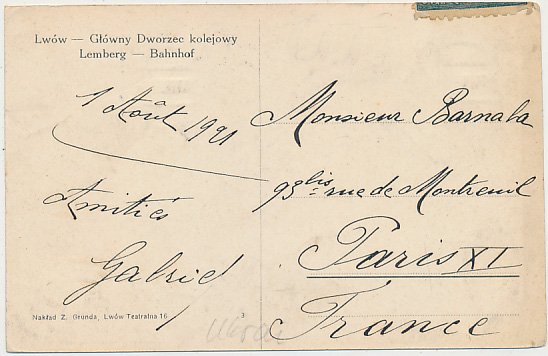 Lwów — Główny Dworzec kolejowy
Lemberg — Bahnhof
1 Août 1921
Amitiés
Gabriel
Monsieur Barnaba
93 bis rue de Montreuil
Paris XI
France
Nakład Z. Grunda, Lwów Teatralna 16
3